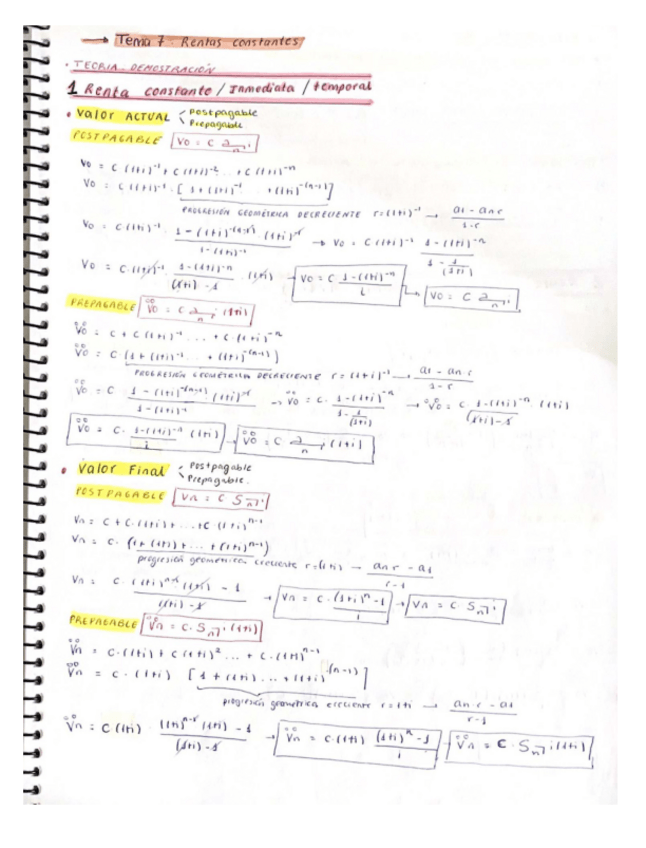 → Tema 7. Rentas constantes
· TEORIA - DEMOSTRACIÓN
1 Renta constante / Inmediata / temporal
• Valor ACTUAL < Postpagable
Prepagable
POSTPAGABLE V0 = C a n¬i
V0 = C (1+i)^-1 + C (1+i)^-2 ... + C (1+i)^-n
V0 = C (1+i)^-1 · [1 + (1+i)^-1 ... + (1+i)^-(n-1)]
PROGRESIÓN GEOMÉTRICA DECRECIENTE r = (1+i)^-1 → a1 - an·r / 1-r
V0 = C (1+i)^-1 · 1 - (1+i)^-(n-1) · (1+i)^-1 / 1 - (1+i)^-1 → V0 = C (1+i)^-1 1 - (1+i)^-n / 1 - 1/(1+i)
V0 = C · (1+i)^-1 · 1 - (1+i)^-n / (1+i) - 1 · (1+i) → V0 = C · 1 - (1+i)^-n / i → V0 = C a n¬i
PREPAGABLE V̈0 = C a n¬i (1+i)
V̈0 = C + C (1+i)^-1 ... + C · (1+i)^-n
V̈0 = C [1 + (1+i)^-1 ... + (1+i)^-(n-1)]
PROGRESIÓN GEOMÉTRICA DECRECIENTE r = (1+i)^-1 → a1 - an·r / 1-r
V̈0 = C · 1 - (1+i)^-(n-1) · (1+i)^-1 / 1 - (1+i)^-1 → V̈0 = C · 1 - (1+i)^-n / 1 - 1/(1+i) → V̈0 = C · 1 - (1+i)^-n · (1+i) / (1+i) - 1
V̈0 = C · 1 - (1+i)^-n / i (1+i) → V̈0 = C a n¬i (1+i)
• Valor Final < Postpagable
Prepagable.
POSTPAGABLE Vn = C S n¬i
Vn = C + C · (1+i) + ... + C · (1+i)^n-1
Vn = C · (1 + (1+i) + ... + (1+i)^n-1)
progresión geométrica creciente r = (1+i) → an·r - a1 / r-1
Vn = C · (1+i)^n-1 · (1+i) - 1 / (1+i) - 1 → Vn = C · (1+i)^n - 1 / i → Vn = C · S n¬i
PREPAGABLE V̈n = C · S n¬i (1+i)
V̈n = C · (1+i) + C (1+i)^2 ... + C · (1+i)^n-1
V̈n = C · (1+i) [1 + (1+i) ... + (1+i)^(n-1)]
progresión geométrica creciente r = 1+i → an·r - a1 / r-1
V̈n = C (1+i) · (1+i)^n-1 (1+i) - 1 / (1+i) - 1 → V̈n = C · (1+i) (1+i)^n - 1 / i → V̈n = C · S n¬i (1+i)